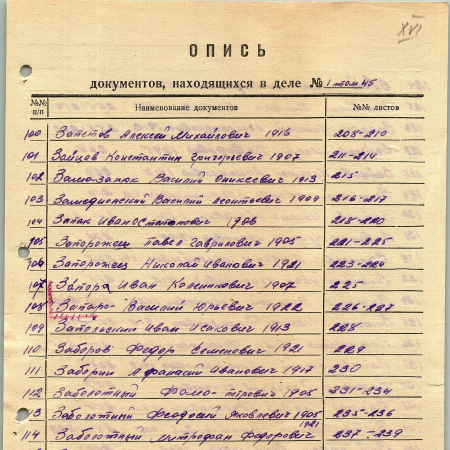 XVI
ОПИСЬ
документов, находящихся в деле № 1 том 45
№№ п/п Наименование документов №№ листов
100 Запетов Алексей Михайлович 1916 208-210
101 Зайцев Константин Григорьевич 1907 211-214
102 Василий 1913 215
103 Василий Леонтьевич 1909 216-217
104 Запак Иван Степанович 1906 218-220
105 Запорожец Павел Гаврилович 1905 221-225
106 Запорожец Николай Иванович 1921 223-224
107 Запора Иван 1907 225
108 Запаро Василий Юрьевич 1922 226-227
109 Запольский Иван Исакович 1913 228
110 Заборов Федор Семенович 1921 229
111 Заборин Афанасий Иванович 1917 230
112 Заболотный Фома петрович 1905 231-234
113 Заболотный Феодосий Яковлевич 1905 235-236
1921
114 Заболотный Митрофан Федорович 237-239